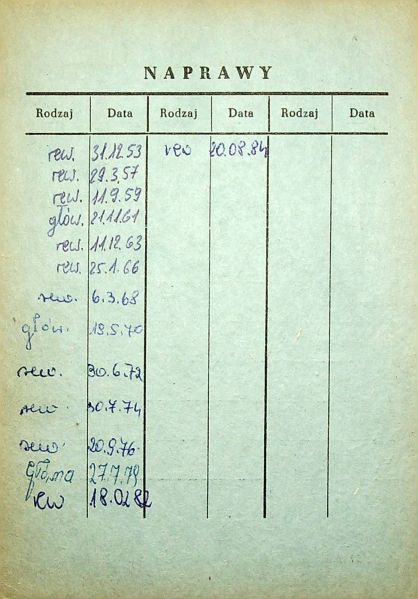 NAPRAWY
Rodzaj Data Rodzaj Data Rodzaj Data
rew. 31.12.53 rew 20.08.84
rew. 29.3.57
rew. 11.9.59
głów. 21.11.61
rew. 11.12.63
rew. 25.1.66
rew. 6.3.68
głów. 19.5.70
rew. 30.6.72
rew. 30.7.74
rew. 20.9.76.
główna 27.7.79
rew 18.02.82